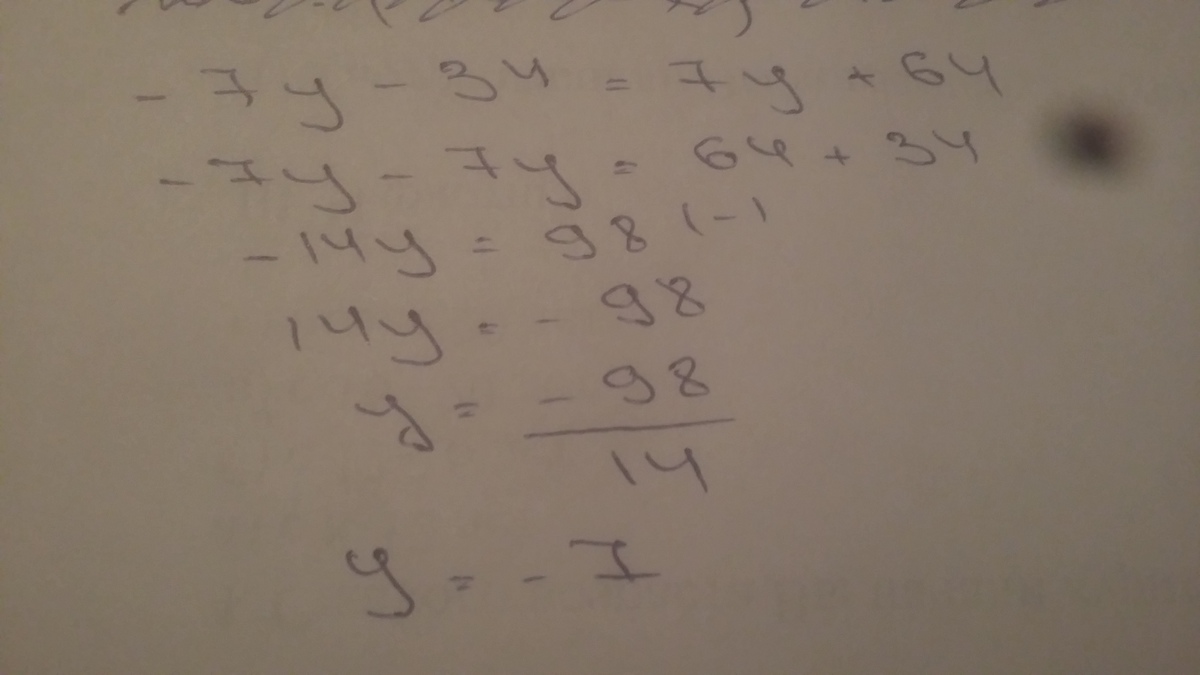 - 7y - 34 = 7y + 64
- 7y - 7y = 64 + 34
- 14y = 98 (-1
14y = - 98
y = - 98
14
y = - 7